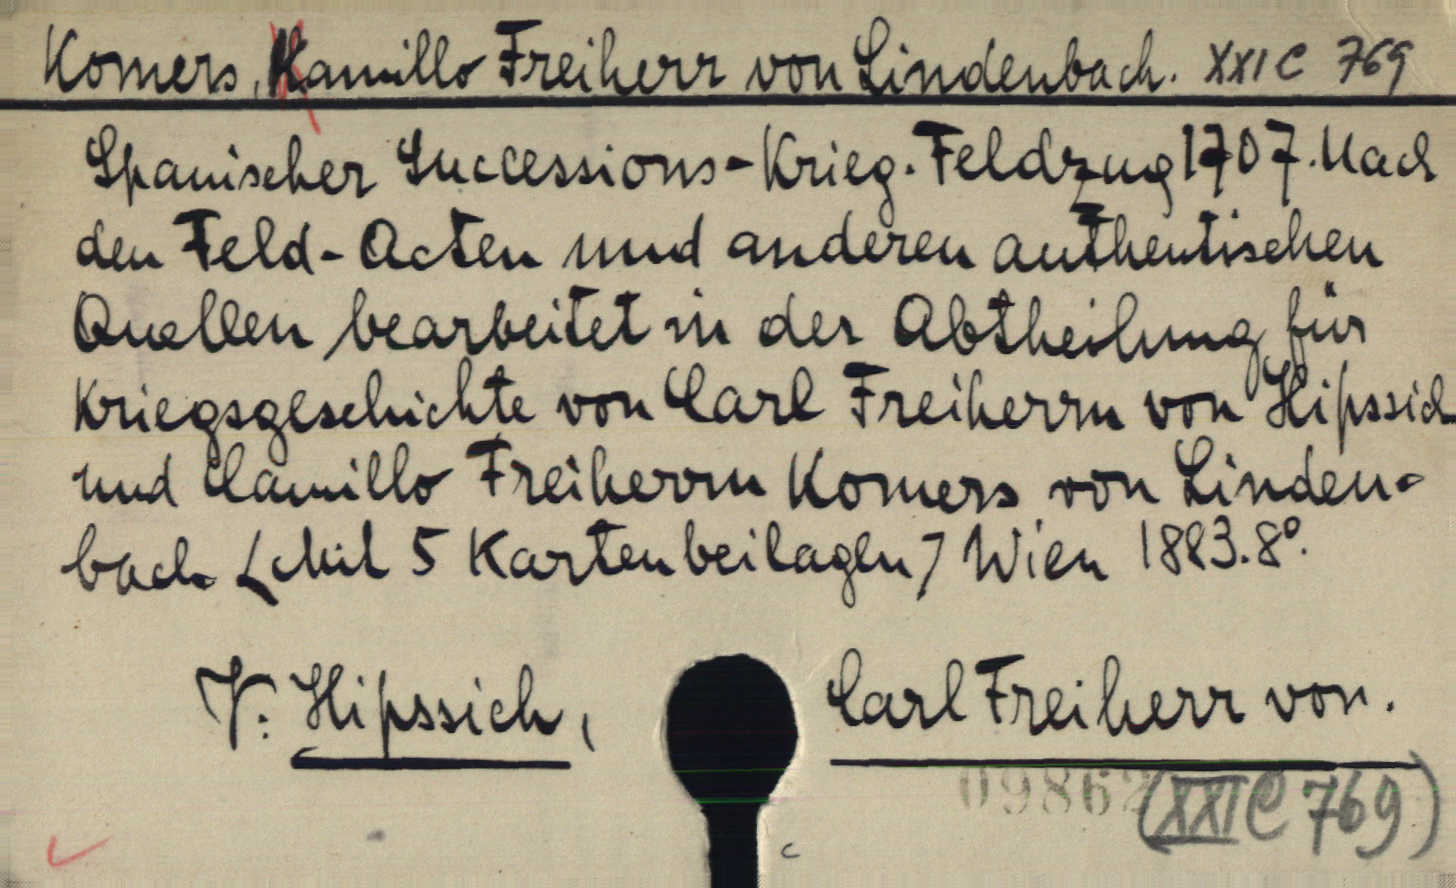 Komers, Kamillo Freiherr von Lindenbach. XXI C 769
Spanischer Successions-Krieg. Feldzug 1707. Nach
den Feld-Acten und anderen authentischen
Quellen bearbeitet in der Abtheilung für
Kriegsgeschichte von Carl Freiherrn von Hipssich
und Camillo Freiherrn Komers von Linden-
bach (Mit 5 Kartenbeilagen) Wien 1883. 8°.
V. Hipssich, Carl Freiherr von.
(XXI C 769)